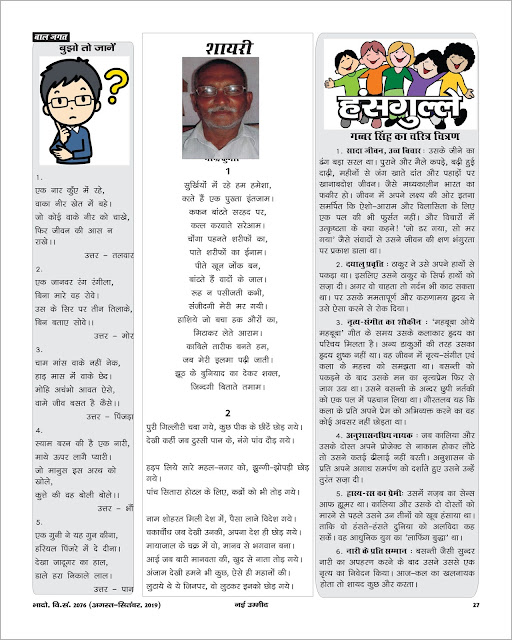 बाल जगत
बुझो तो जानें
1.
एक नार कुँए में रहे,
वाका नीर खेत में बहे।
जो कोई वाके नीर को चाखे,
फिर जीवन की आस न
राखे।।
उत्तर – तलवार
2.
एक जानवर रंग रंगीला,
बिना मारे वह रोवे।
उस के सिर पर तीन तिलाके,
बिन बताए सोवे।।
उत्तर – मोर
3.
चाम मांस वाके नहीं नेक,
हाड़ मास में वाके छेद।
मोहि अचंभो आवत ऐसे,
वामे जीव बसत है कैसे।।
उत्तर – पिंजड़ा
4.
स्याम बरन की है एक नारी,
माथे ऊपर लागै प्यारी।
जो मानुस इस अरथ को
खोले,
कुत्ते की वह बोली बोले।।
उत्तर – भौं
5.
एक गुनी ने यह गुन कीना,
हरियल पिंजरे में दे दीना।
देखा जादूगर का हाल,
डाले हरा निकाले लाल।
उत्तर – पान
शायरी
1
सुर्खियों में रहे हम हमेशा,
करते हैं एक पुख्ता इंतजाम।
कफन बांटते सरहद पर,
कत्ल करवाते सरेआम।
चोंगा पहनते शरीफों का,
पाते शरीफों का ईनाम।
पीते खून जोंक बन,
बांटते हैं वादों के जाल।
रूह न पसीजती कभी,
संजीदगी मेरी मर गयी।
हाशिये जो बचा हक औरों का,
मिटाकर लेते आराम।
काबिले तारीफ बनते हम,
जब मेरी इलमा पढ़ी जाती।
झूठ के बुनियाद का देकर शक्ल,
जिन्दगी बिताते तमाम।
2
पुरी गिल्लौरी चबा गये, कुछ पीक के छींटें छोड़ गये।
देखी कहीं जब दुरसी पान के, नंगे पांव दौड़ गये।
हड़प लिये सारे महल-नगर को, झुग्गी-झोपड़ी छोड़
गये।
पांच सितारा होटल के लिए, कब्रों को भी तोड़ गये।
नाम शोहरत मिली देश में, पैसा लाने विदेश गये।
चकाचौंध जब देखी उनकी, अपना देश ही छोड़ गये।
मायाजाल के चक्र में वो, मानव से भगवान बना।
आई जब बारी मानवता की, खुद से नाता तोड़ गये।
अंजाम देखी हमने भी कुछ, ऐसे ही महानों की।
लुटाये थे ये जिनपर, वो लुटकर इनको छोड़ गये।
हंसगुल्ले
गब्बर सिंह का चरित्र चित्रण
1. सादा जीवन, उच्च विचार : उसके जीने का
ढंग बड़ा सरल था। पुराने और मैले कपड़े, बढ़ी हुई
दाढ़ी, महीनों से जंग खाते दांत और पहाड़ों पर
खानाबदोश जीवन। जैसे मध्यकालीन भारत का
फकीर हो। जीवन में अपने लक्ष्य की ओर इतना
समर्पित कि ऐशो-आराम और विलासिता के लिए
एक पल की भी फुर्सत नहीं। और विचारों में
उत्कृष्टता के क्या कहने! 'जो डर गया, सो मर
गया' जैसे संवादों से उसने जीवन की क्षण भंगुरता
पर प्रकाश डाला था।
2. दयालु प्रवृत्ति : ठाकुर ने उसे अपने हाथों से
पकड़ा था। इसलिए उसने ठाकुर के सिर्फ हाथों को
सज़ा दी। अगर वो चाहता तो गर्दन भी काट सकता
था। पर उसके ममतापूर्ण और करुणामय ह्रदय ने
उसे ऐसा करने से रोक दिया।
3. नृत्य-संगीत का शौकीन : 'महबूबा ओये
महबूबा' गीत के समय उसके कलाकार ह्रदय का
परिचय मिलता है। अन्य डाकुओं की तरह उसका
ह्रदय शुष्क नहीं था। वह जीवन में नृत्य-संगीत एवं
कला के महत्त्व को समझता था। बसन्ती को
पकड़ने के बाद उसके मन का नृत्यप्रेम फिर से
जाग उठा था। उसने बसन्ती के अन्दर छुपी नर्तकी
को एक पल में पहचान लिया था। गौरतलब यह कि
कला के प्रति अपने प्रेम को अभिव्यक्त करने का वह
कोई अवसर नहीं छोड़ता था।
4. अनुशासनप्रिय नायक : जब कालिया और
उसके दोस्त अपने प्रोजेक्ट से नाकाम होकर लौटे
तो उसने कतई ढीलाई नहीं बरती। अनुशासन के
प्रति अपने अगाध समर्पण को दर्शाते हुए उसने उन्हें
तुरंत सज़ा दी।
5. हास्य-रस का प्रेमी : उसमें गज़ब का सेन्स
आफ ह्यूमर था। कालिया और उसके दो दोस्तों को
मारने से पहले उसने उन तीनों को खूब हंसाया था।
ताकि वो हंसते-हंसते दुनिया को अलविदा कह
सकें। वह आधुनिक युग का 'लाफिंग बुद्धा' था।
6. नारी के प्रति सम्मान : बसन्ती जैसी सुन्दर
नारी का अपहरण करने के बाद उसने उससे एक
नृत्य का निवेदन किया। आज-कल का खलनायक
होता तो शायद कुछ और करता।
भादो, वि.सं. 2076 (अगस्त–सितंबर, 2019)
नई उम्मीद
27